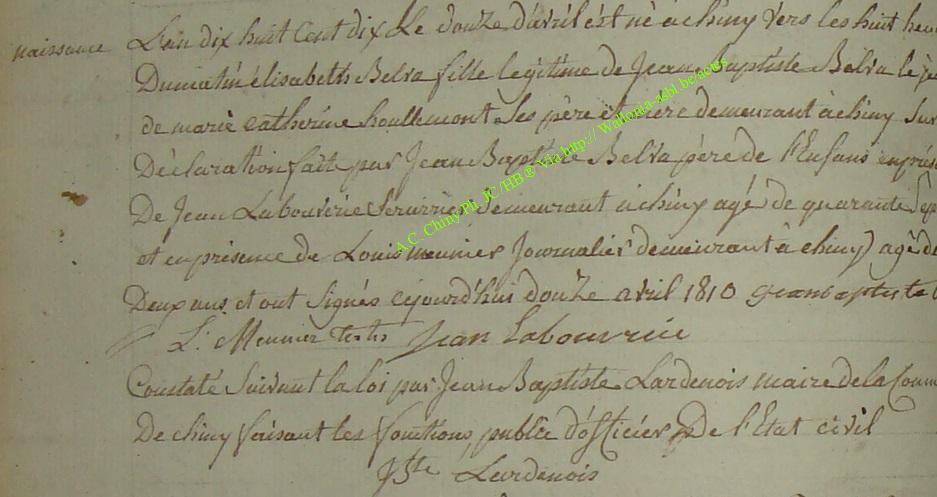 naissance L'an dix huit Cent dix Le douze d'avril est né à chiny vers les huit heu
Du matin élisabeth Belva fille legitime de Jean Baptiste Belva le
de marie Catherine houllemont. ses père et mere demeurant à chiny Sur
Déclaration faite par Jean Baptiste Belva père de l'Enfans en prése
De Jean Labouverie Serurrier demeurant à chiny agé de quarante Sep
et en présence de Louis meunier Journalier demeurant à chiny agé de
Deux ans et ont Signés cejourd'hui douze avril 1810 jean baptiste
L. Meunier testis Jean Labouverie
Constaté Suivant la loi par Jean Baptiste Lardenois maire de la Comm
De chiny faisant les fonctions public d'officier De l'Etat civil
JBte Lardenois
A.C. Chiny Ph. JC /HB ® Via http:// Wallonia-asbl.be/actes